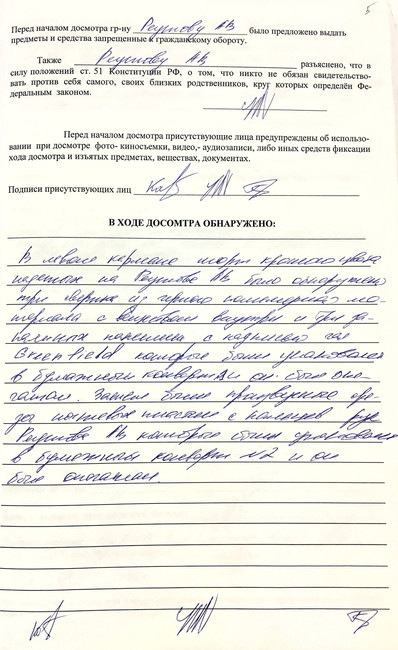 5
Перед началом досмотра гр-ну Реутову АВ было предложено выдать
предметы и средства запрещенные к гражданскому обороту.
Также Реутову АВ разъяснено, что в
силу положений ст. 51 Конституции РФ, о том, что никто не обязан свидетельство-
вать против себя самого, своих близких родственников, круг которых определён Фе-
деральным законом.
Перед началом досмотра присутствующие лица предупреждены об использо-
вании при досмотре фото- киносъемки, видео,- аудиозаписи, либо иных средств фиксации
хода досмотра и изъятых предметах, веществах, документах.
Подписи присутствующих лиц
В ХОДЕ ДОСОМТРА ОБНАРУЖЕНО:
В левом кармане шорт красного цвета
надетых на Реутове АВ было обнаружено
три свертка из черного полимерного ма-
териала с веществом внутри и три
пакетика с надписью чая
Greenfield которые были упакованы
в бумажный конверт и он был опе-
чатан. Затем были произведены сре-
зы ногтевых пластин с пальцев рук
Реутова АВ которые были упакованы
в бумажный конверт №2 и он
был опечатан.